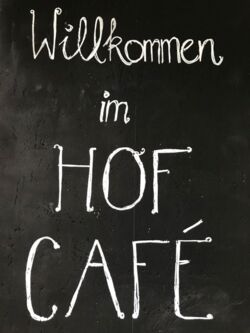 Willkommen
im
HOF
CAFÉ